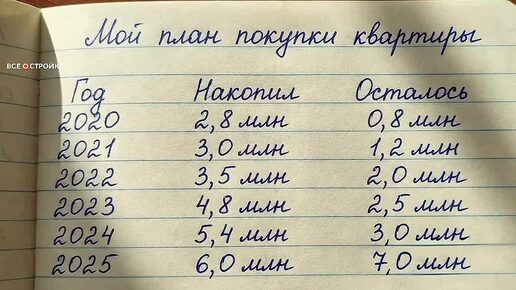 Мой план покупки квартиры
ВСЕ О СТРОЙКЕ
Год Накопил Осталось
2020 2,8 млн 0,8 млн
2021 3,0 млн 1,2 млн
2022 3,5 млн 2,0 млн
2023 4,8 млн 2,5 млн
2024 5,4 млн 3,0 млн
2025 6,0 млн 7,0 млн